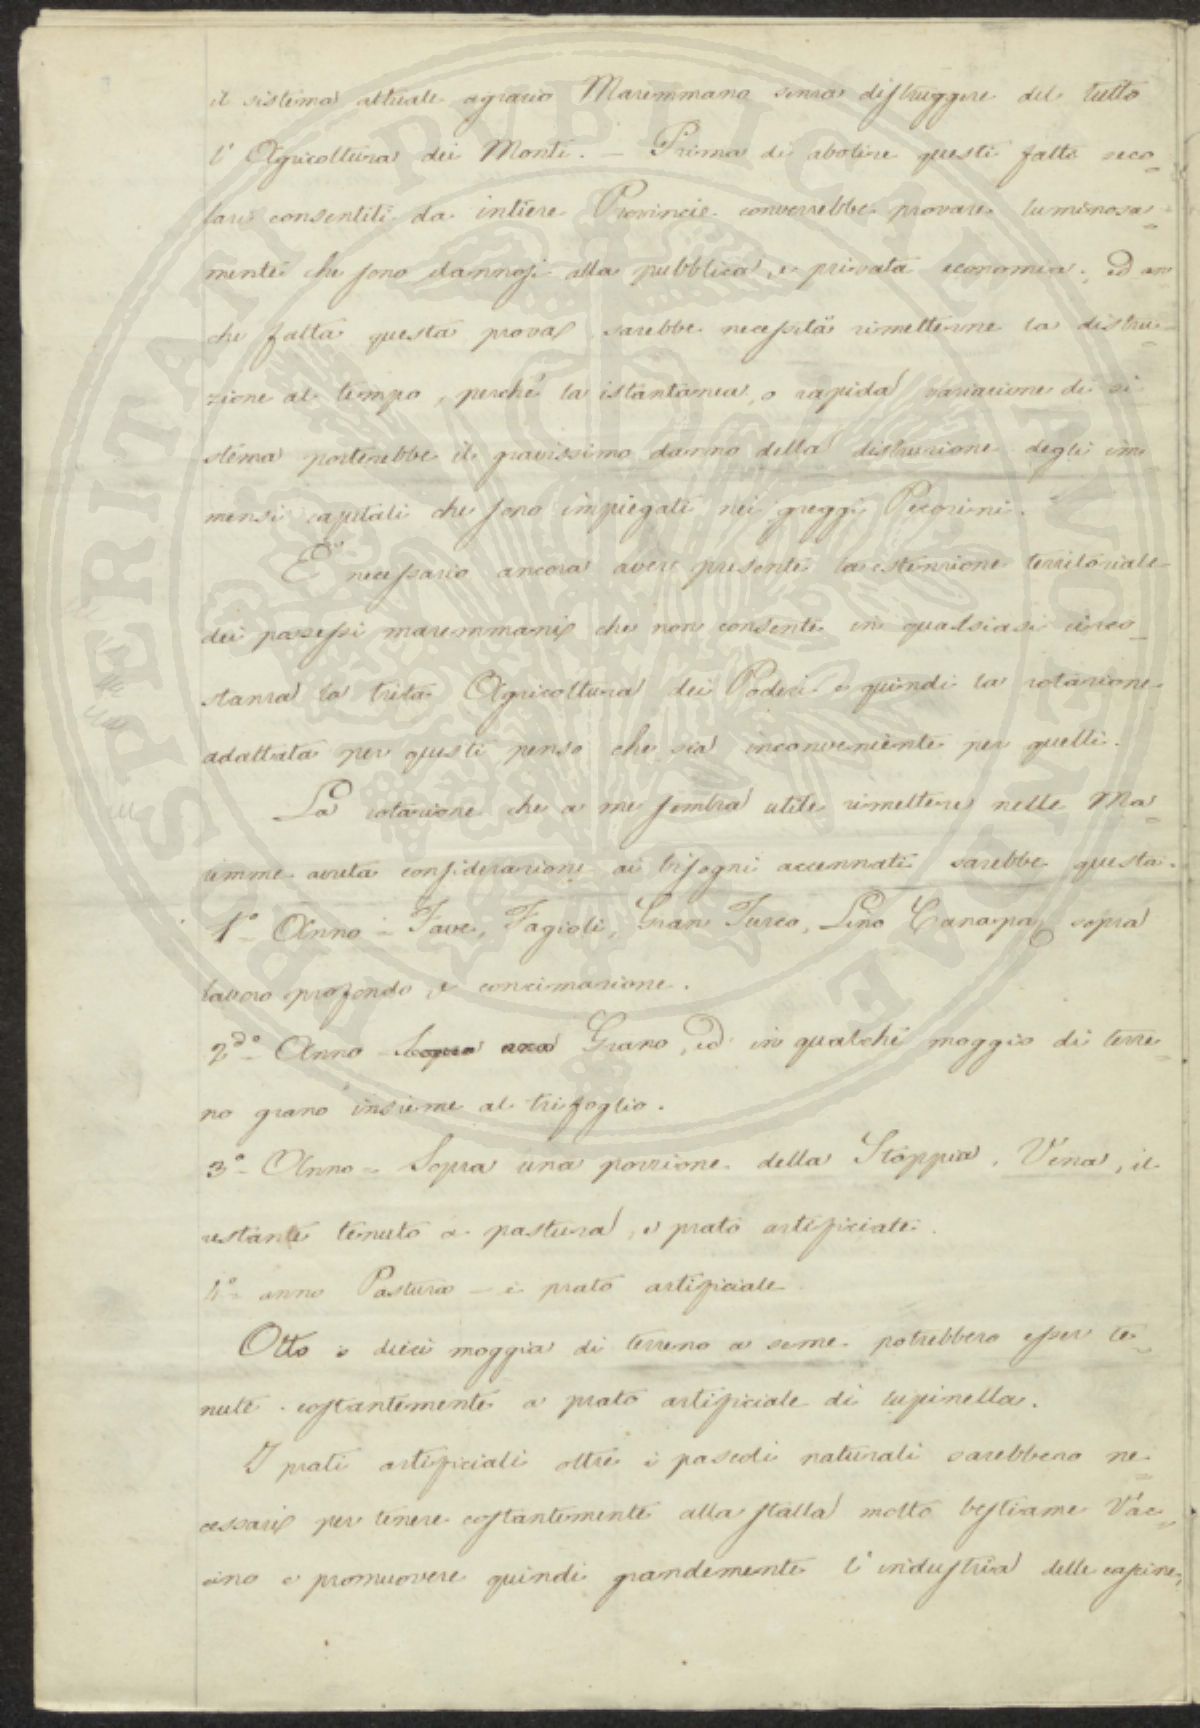 il sistema attuale agrario Maremmano senza distruggere del tutto
l'Agricoltura dei Monti. – Prima di abolire questi fatti seco=
lari consentiti da intiere Provincie converrebbe provare luminosa=
mente che sono dannosi alla pubblica, e privata economia; ed an
che fatta questa prova sarebbe necessità rimetterne la distru=
zione al tempo, perché la istantanea, o rapida variazione di si
stema porterebbe il gravissimo danno della distruzione degli im
mensi capitali che sono impiegati nei greggi Pecorini.
E' necessario ancora avere presente la estenzione territoriale
dei possessi maremmani che non consente in qualsiasi circo=
stanza la trita Agricoltura dei Poderi e quindi la rotazione
adattata per questi penso che sia inconveniente per quelli.
La rotazione che a me sembra utile rimettere nelle Ma=
remme avuta considerazione ai bisogni accennati sarebbe questa.
1° Anno = Fave, Fagioli, Gran Turco, Lino Canapa, sopra
lavoro profondo, e concimazione.
2do Anno – Grano, ed in qualche moggio di terre=
no grano insieme al trifoglio.
3° Anno = Sopra una porzione della Stoppia, Vena, il
restante tenuto a pastura, e prato artificiale.
4° anno Pastura – e prato artificiale.
Otto o dieci moggia di terreno a seme potrebbero esser te=
nute costantemente a prato artificiale di lupinella.
I prati artificiali oltre i pascoli naturali sarebbero ne=
cessari per tenere costantemente alla stalla molto bestiame Vac=
cino e promuovere quindi grandemente l'industria delle cascine,
PROSPERITATI PUBLICAE AUGENDAE